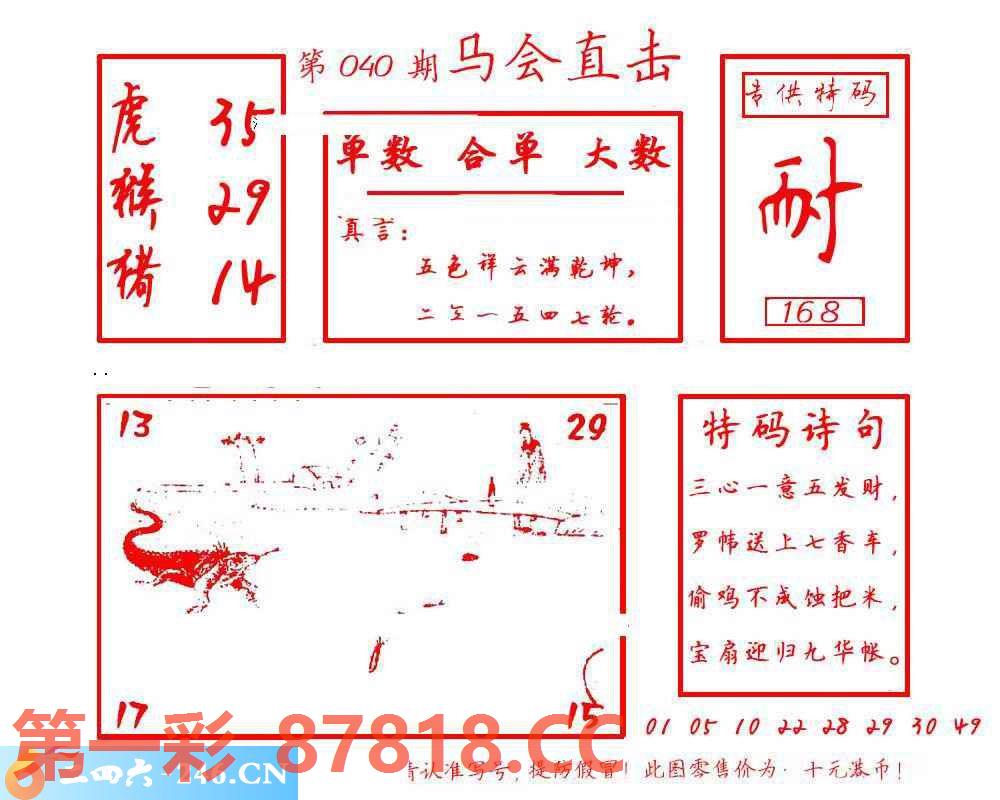 第 040 期 马会直击
虎 35
猴 29
猪 14
单数 合单 大数
真言：
五色祥云满乾坤，
二三一五四七轮。
专供特码
耐
168
13 29
17 15
特码诗句
三心一意五发财，
罗帏送上七香车，
偷鸡不成蚀把米，
宝扇迎归九华帐。
01 05 10 22 28 29 30 49
第一彩 87818.CC
二四六-246.CN
请认准写号，提防假冒！此图零售价为：十元港币！